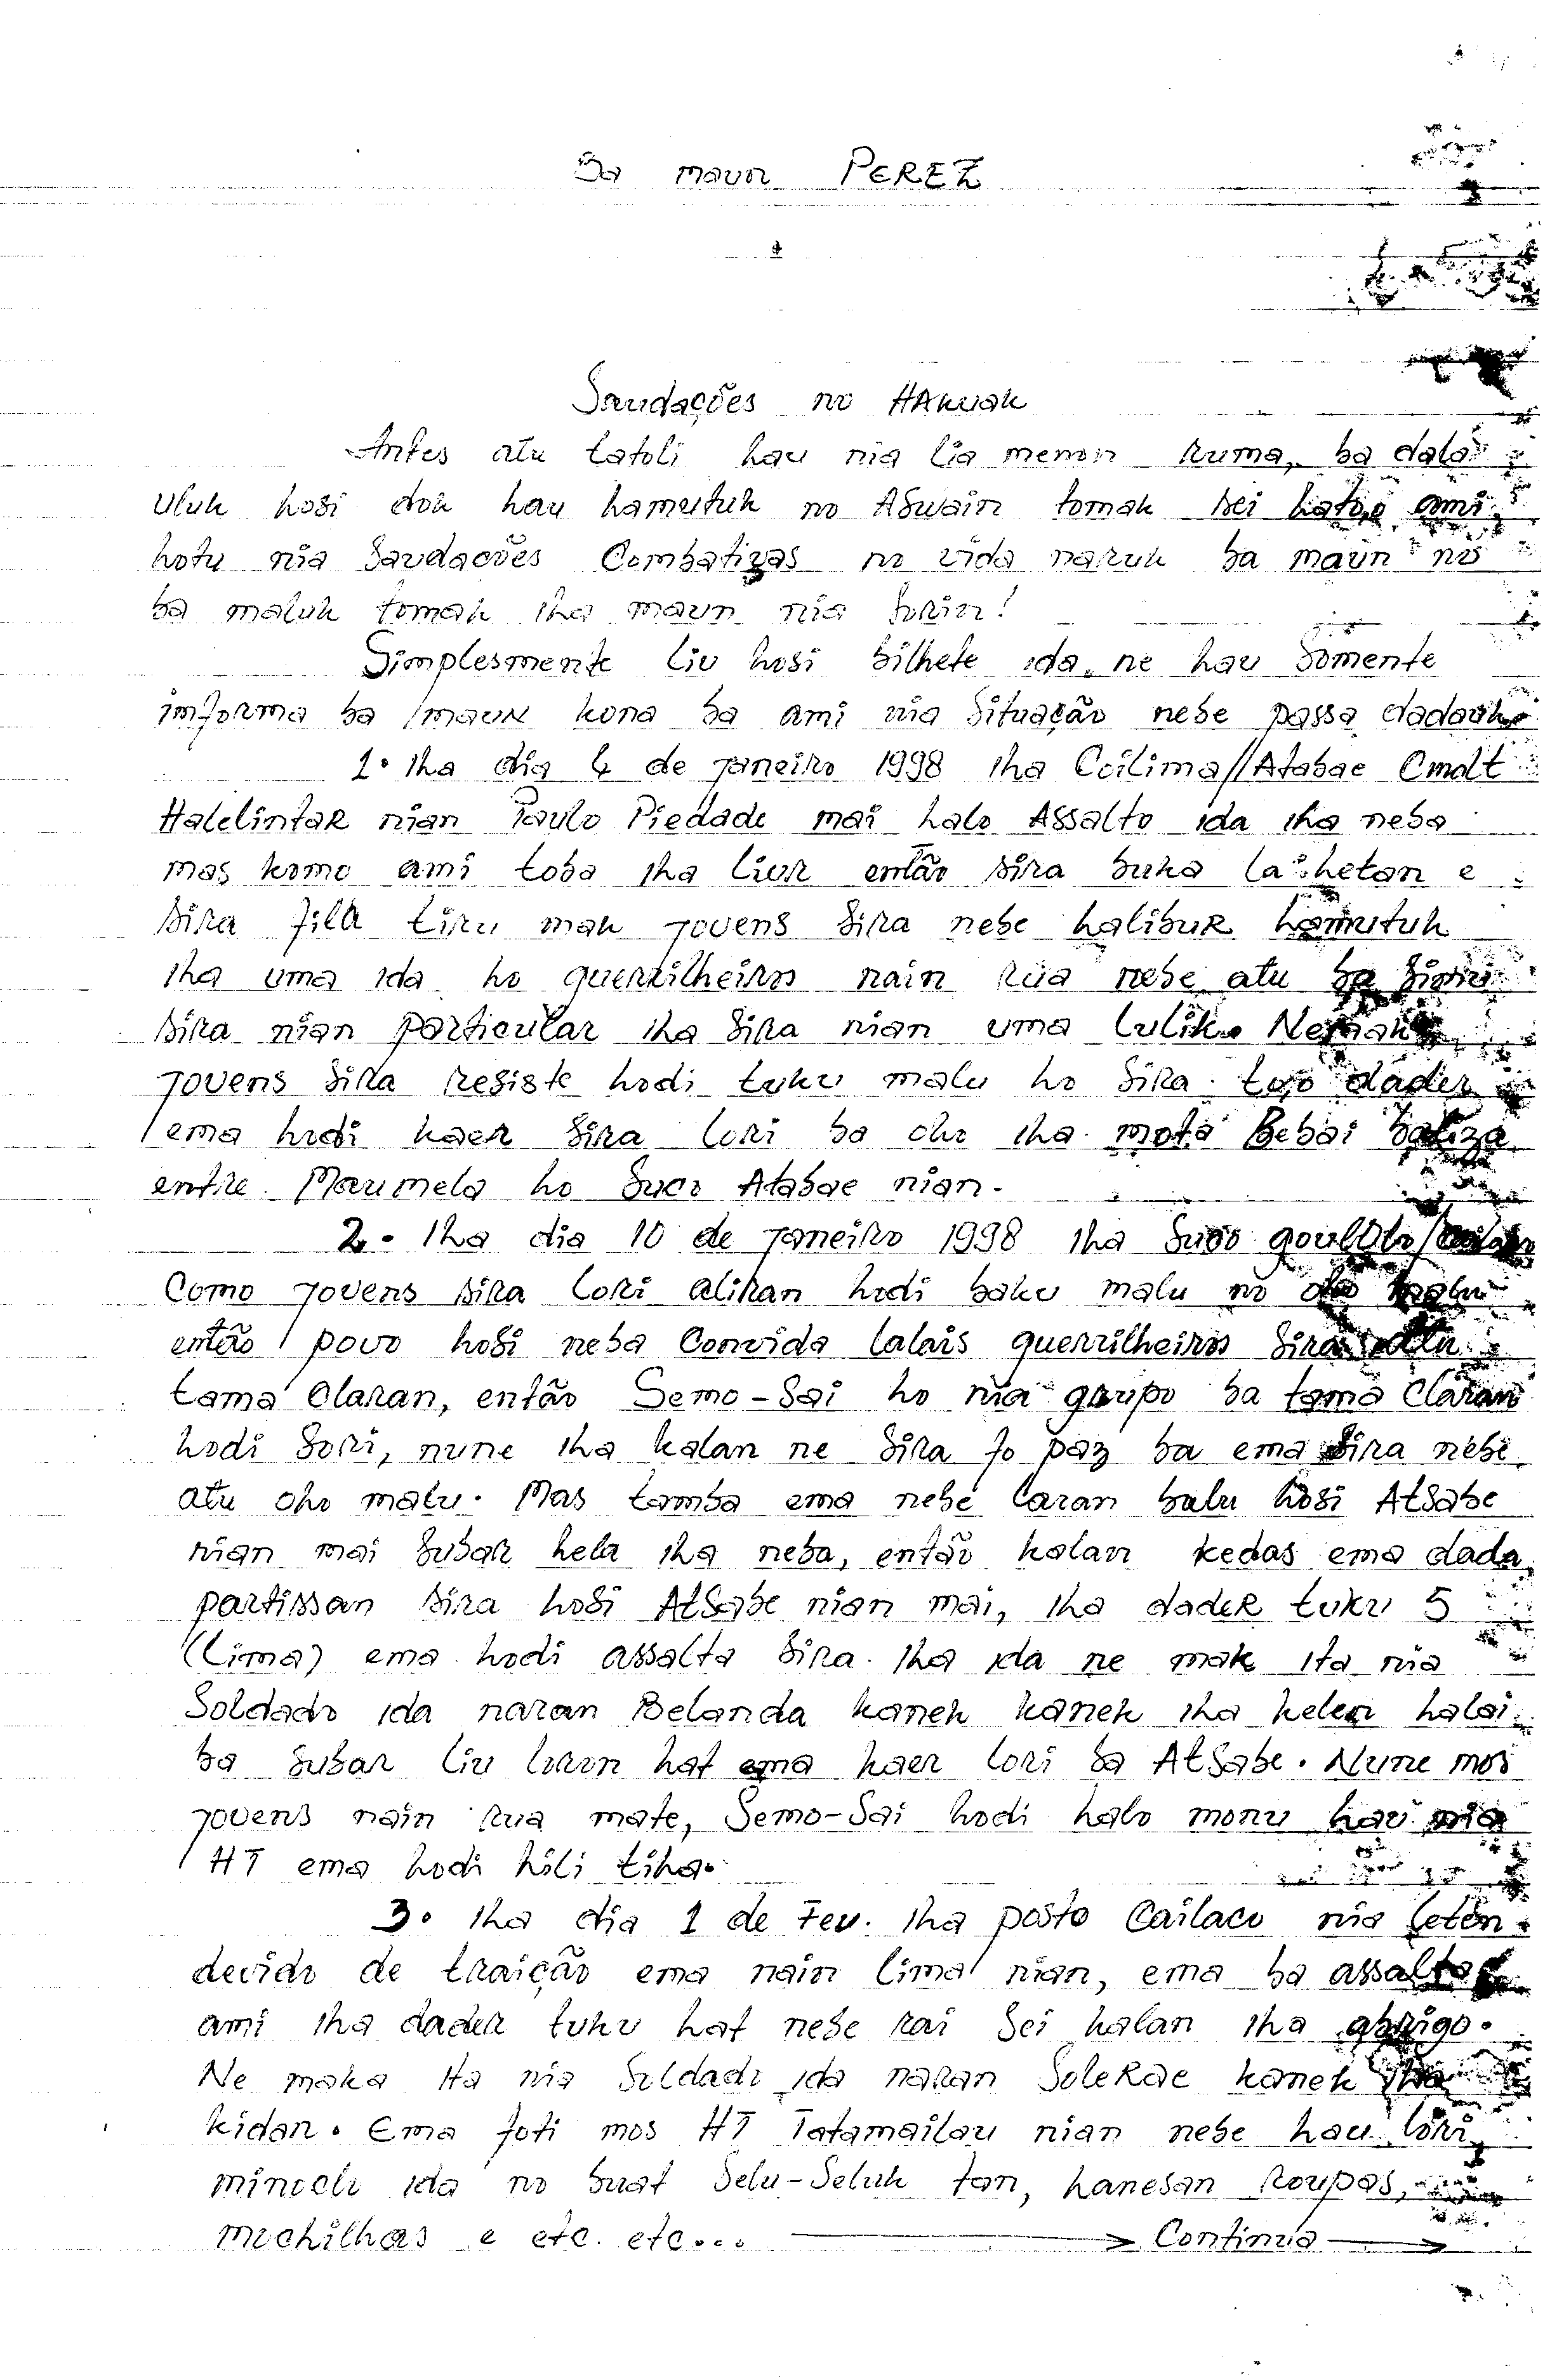 Ba maun PEREZ
Saudações no HAKUAK
Antes atu tatoli hau nia lia menon ruma, ba dala
uluk hosi dok hau hamutuk no ASwain tomak sei hato,o ami
hotu nia Saudacões Combativas no vida naruk ba maun no
ba maluk tomak iha maun nia sorin!
Simplesmente liu hosi bilhete ida ne hau somente
informa ba maun kona ba ami nia Situação nebe passa dadauk
1. Iha dia 4 de janeiro 1998 iha Coilima//Atabae Cmdt
Halelintar nian Paulo Piedade mai halo Assalto ida iha neba
mas komo ami toba iha liur então sira buka la hetan e
sira fila tiru mak jovens sira nebe halibur hamutuk
iha uma ida ho guerrilheiros nain rua nebe atu ba
sira nian particular iha sira nian uma lulik.
jovens sira resiste hodi tuku malu ho sira to,o dader
ema hodi kaer sira lori ba oho iha mota Bebai baliza
entre Maumela ho Suco Atabae nian.
2. Iha dia 10 de janeiro 1998 iha Suco goulolo/
Como jovens sira lori aliran hodi baku malu no oho malu
então povo hosi neba Convida lalais guerrilheiros sira atu
tama claran, então Semo-Sai ho nia grupo ba tama Claran
hodi sori, nune iha kalan ne sira fo paz ba ema sira nebe
atu oho malu. Mas tamba ema nebe laran balu hosi Atsabe
nian mai subar hela iha neba, então kalan kedas ema dada
partissan sira hosi AtSabe nian mai, iha dader tuku 5
(Lima) ema hodi assalta sira. Iha ida ne mak ita nia
Soldado ida naran Belanda kanek kanek iha kelen halai
ba subar liu loron hat ema kaer lori ba AtSabe. Nune mos
jovens nain rua mate, Semo-Sai hodi halo monu hau nia
HT ema hodi hili tiha.
3. Iha dia 1 de Fev. iha posto Cailaco nia leten
devido de traição ema nain lima nian, ema ba assalta
ami iha dader tuku hat nebe rai sei kalan iha abrigo.
Ne maka ita nia Soldado ida naran SoleRae kanek iha
kidan. Ema foti mos HT Tatamailau nian nebe hau lori,
minoclo ida no buat Selu-Seluk tan, hanesan Roupas,
mochilhas e etc. etc... Continua